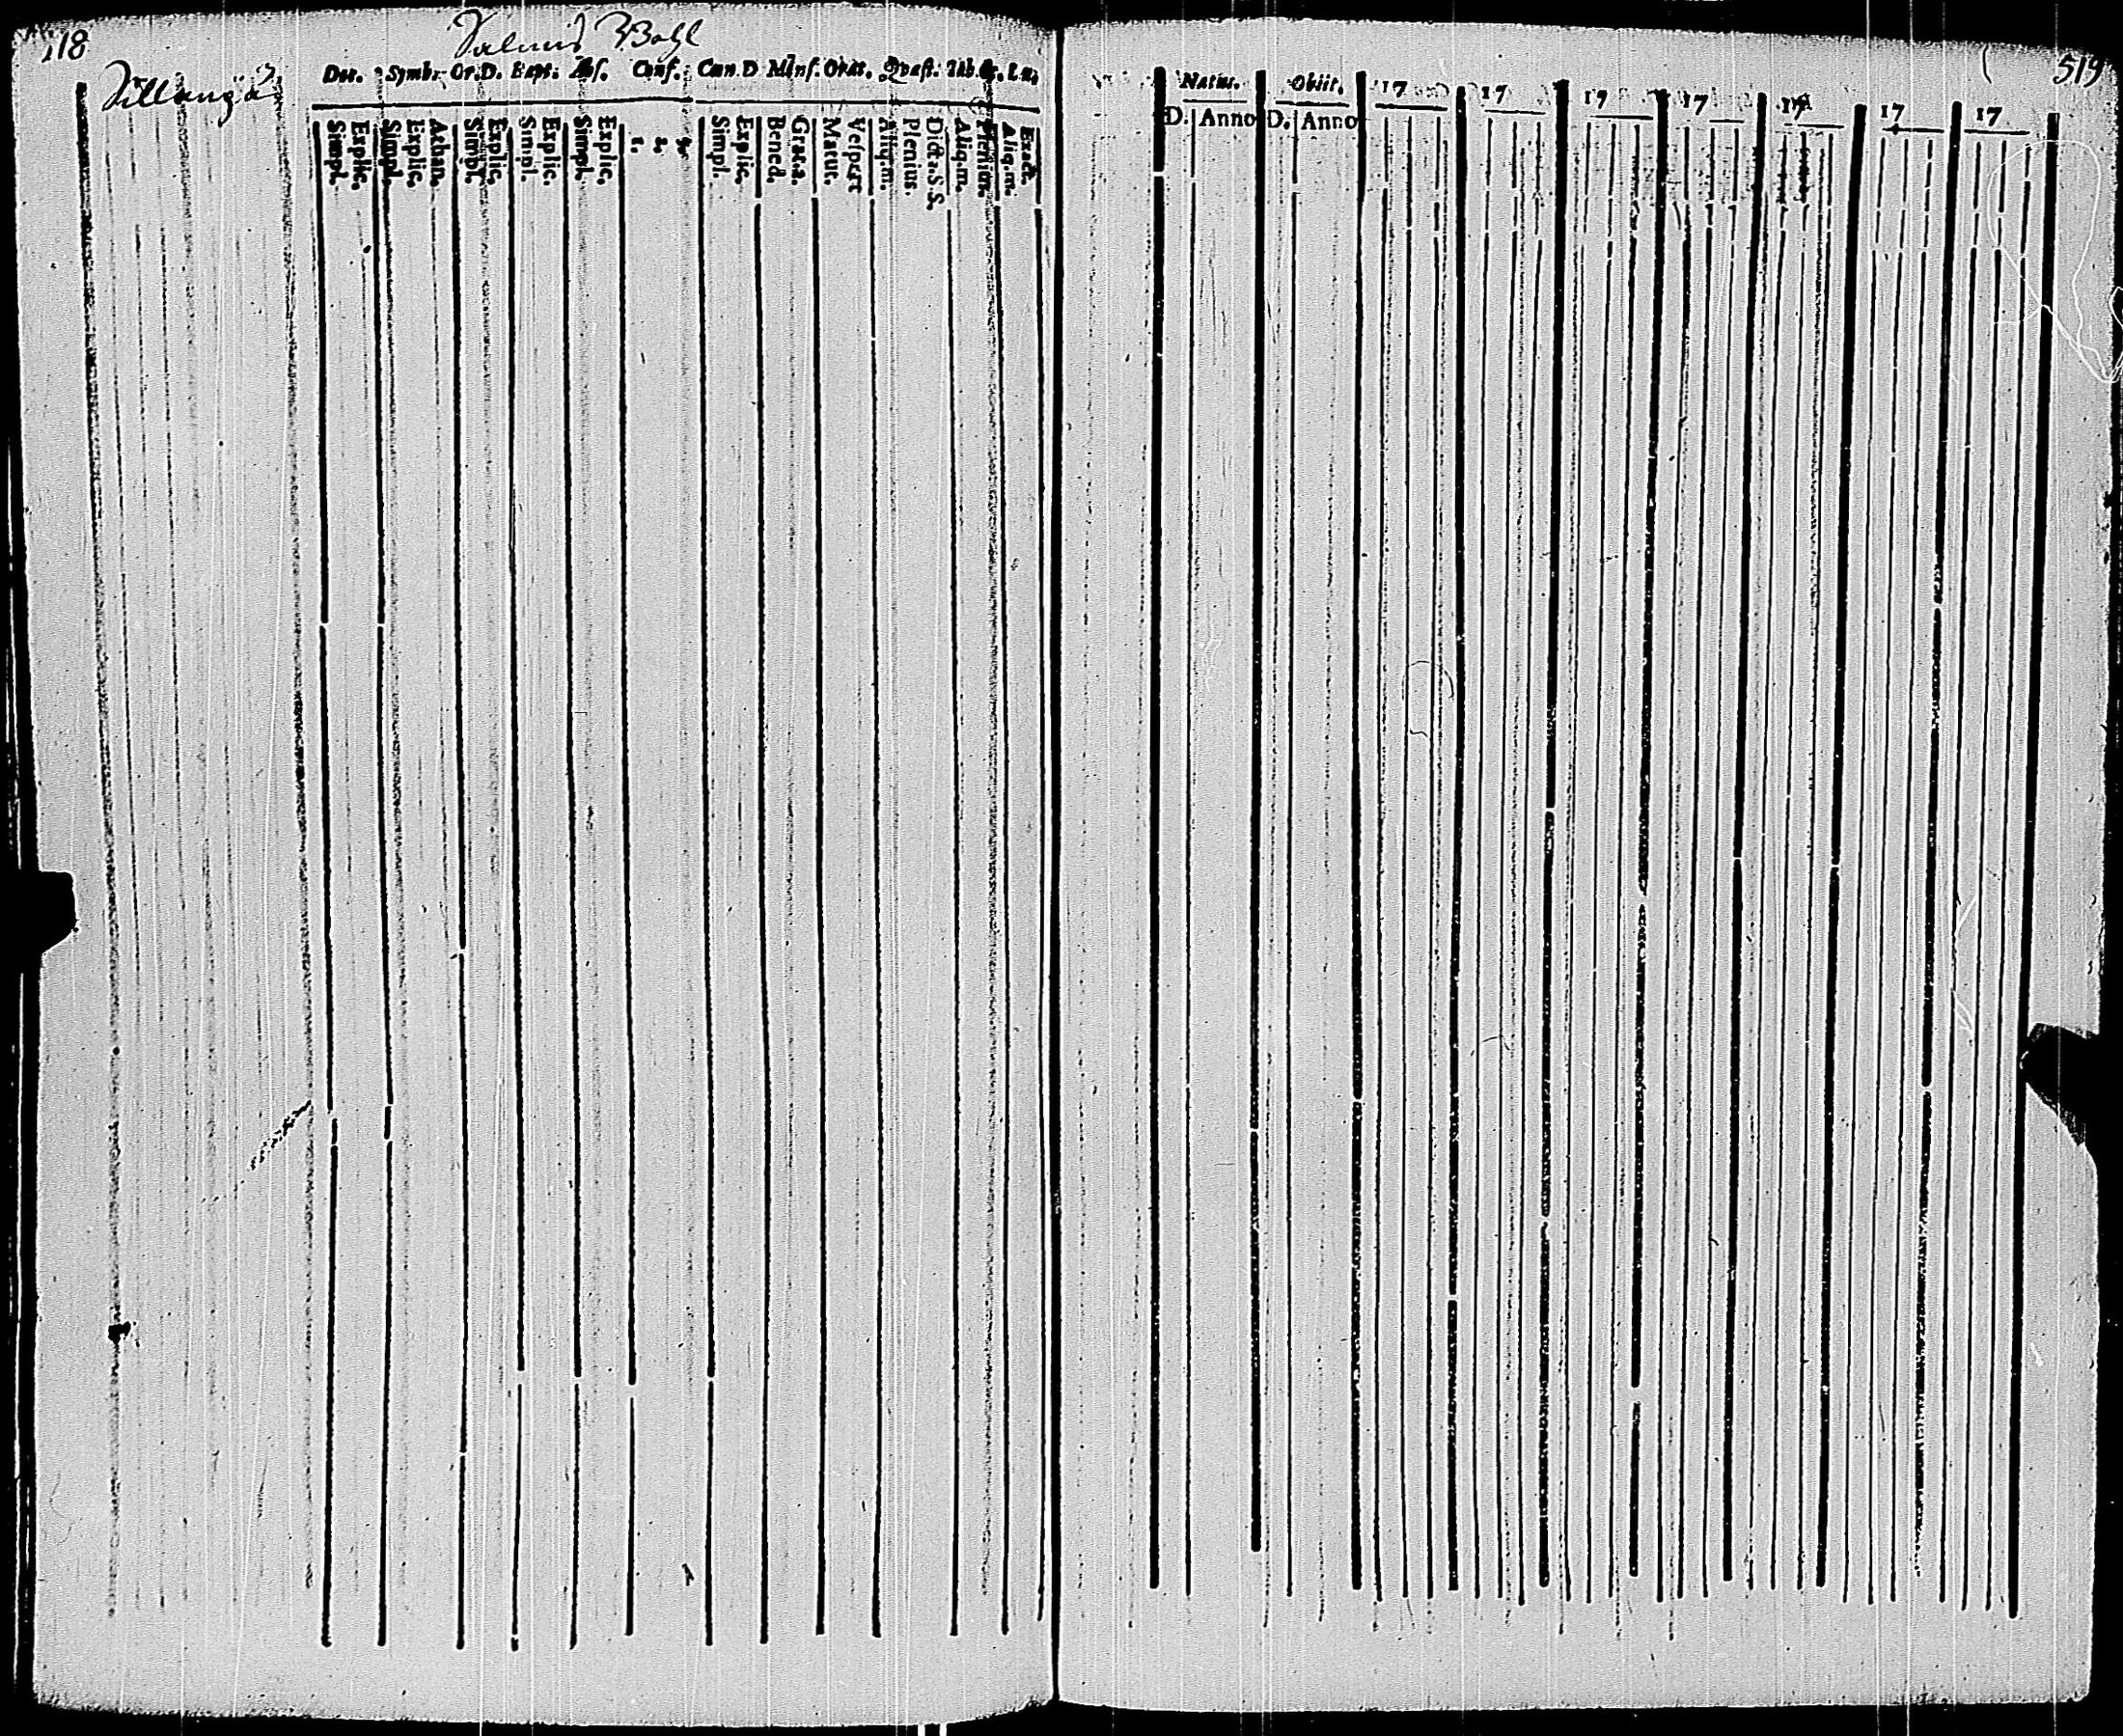 118
Salmis Bohl
Tillangä
Dec. Symb. Or.D. Bapt. Abs. Conf. Cœn.D Mens. Orat. Quæst. Tab.Œ.
Simpl. Explic. Simpl. Explic. Athan. Simpl. Explic. Simpl. Explic. Simpl. Explic. 1. 2. 3. Simpl. Explic. Bened. Grat.a. Matut. Vespert Aliq.m. Plenius. Dicta.S.S. Aliq.m. Plenius. Aliq.m. Exact.
519
Natus. Obiit. 17 17 17 17 17 17 17
D. Anno D. Anno